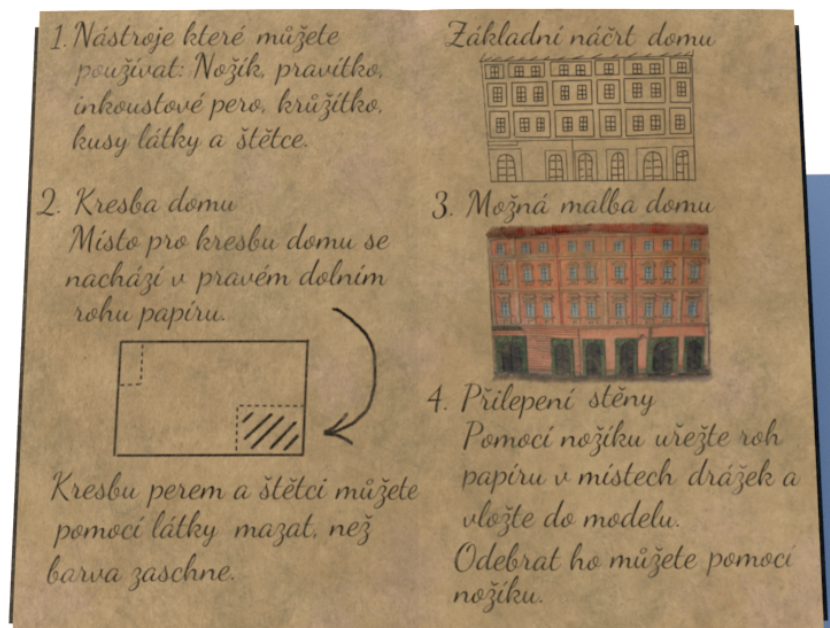 1. Nástroje které můžete
používat: Nožík, pravítko,
inkoustové pero, krůžítko,
kusy látky a štětce.
2. Kresba domu
Místo pro kresbu domu se
nachází v pravém dolním
rohu papíru.
Kresbu perem a štětci můžete
pomocí látky mazat, než
barva zaschne.
Základní náčrt domu
3. Možná malba domu
4. Přilepení stěny
Pomocí nožíku uřežte roh
papíru v místech drážek a
vložte do modelu.
Odebrat ho můžete pomocí
nožíku.